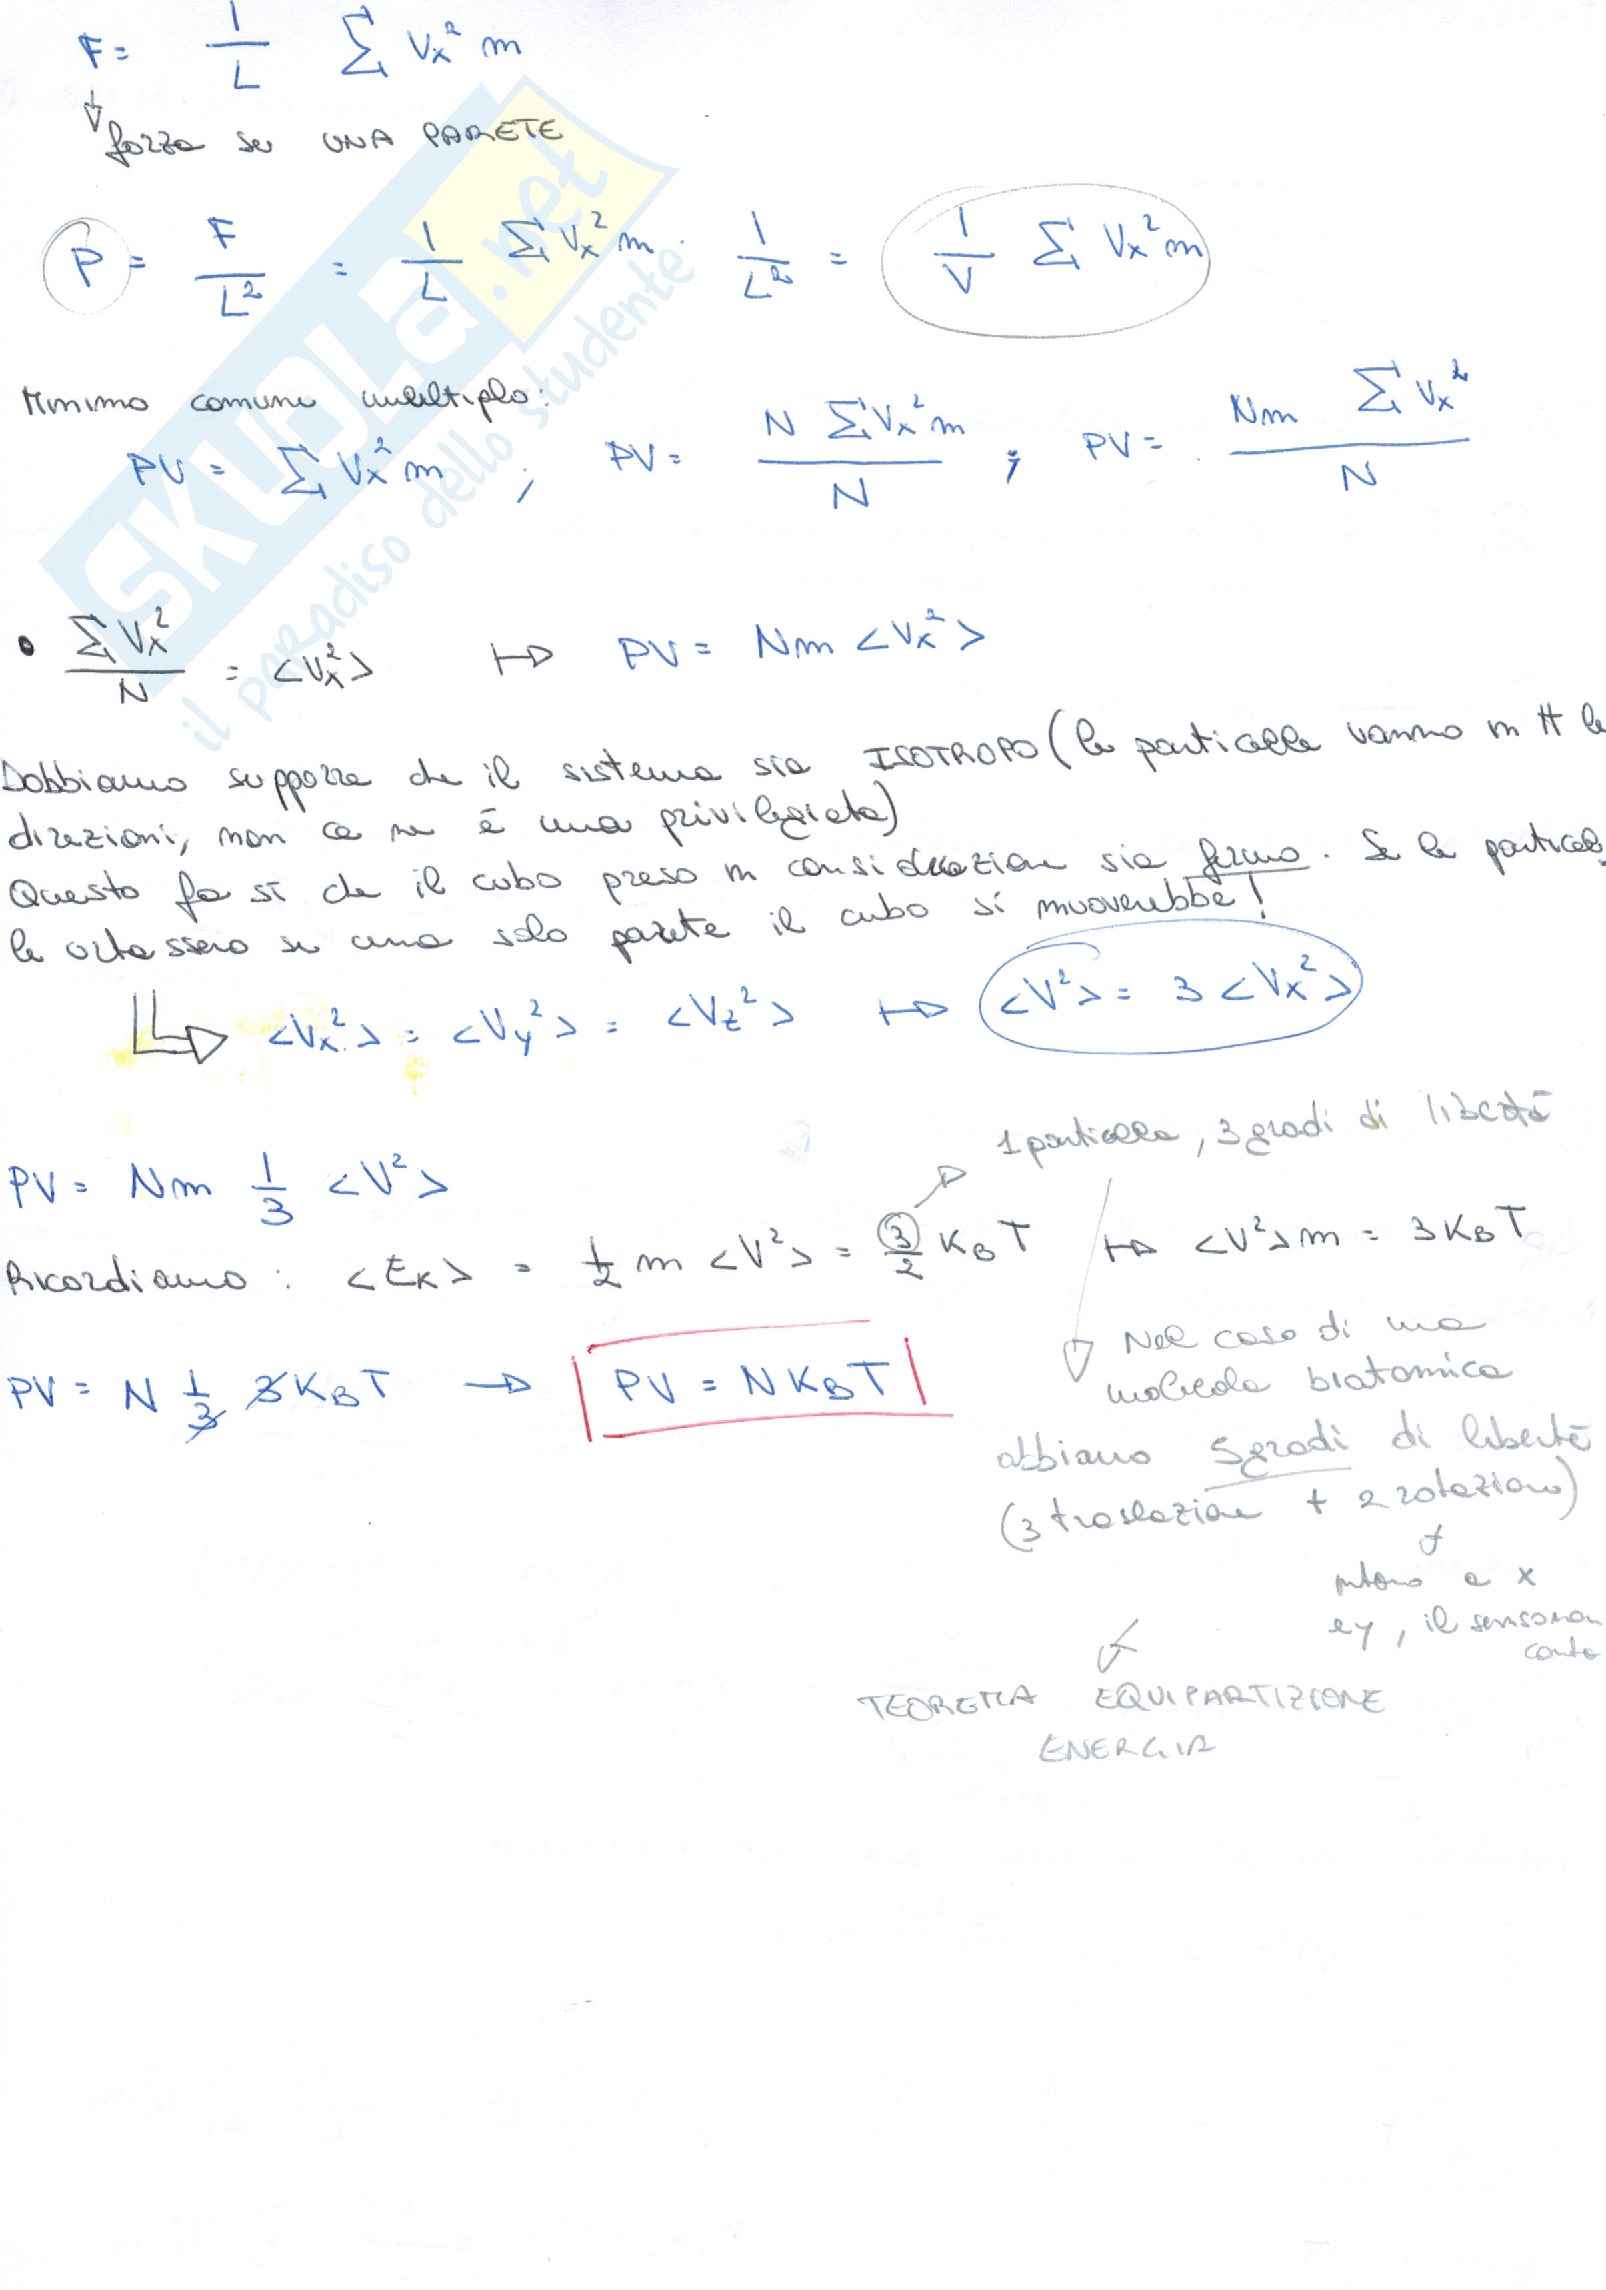 F = 1/L Σ Vx² m
forza su UNA PARETE
P = F/L² = 1/L Σ Vx² m · 1/L² = 1/V Σ Vx² m
Minimo comune multiplo:
PV = Σ Vx² m ; PV = N Σ Vx² m / N ; PV = Nm Σ Vx² / N
• Σ Vx² / N = <Vx²> ↦ PV = Nm <Vx²>
Dobbiamo supporre che il sistema sia ISOTROPO (le particelle vanno in tt le
direzioni, non ce ne è una privilegiata)
Questo fa sì che il cubo preso in considerazione sia fermo. Se le particel
le urtassero su una solo parete il cubo si muoverebbe!
<Vx²> = <Vy²> = <Vz²> ↦ <V²> = 3 <Vx²>
1 particella, 3 gradi di libertà
PV = Nm 1/3 <V²>
Ricordiamo : <EK> = 1/2 m <V²> = 3/2 KB T ↦ <V²> m = 3 KB T
PV = N 1/3 3 KB T → PV = N KB T
Nel caso di una
molecola biatomica
abbiamo 5 gradi di libertà
(3 traslazione + 2 rotazione)
intorno a x
e y, il senso non
conta
TEOREMA EQUIPARTIZIONE
ENERGIA
SKUOLa.net
il paradiso dello studente